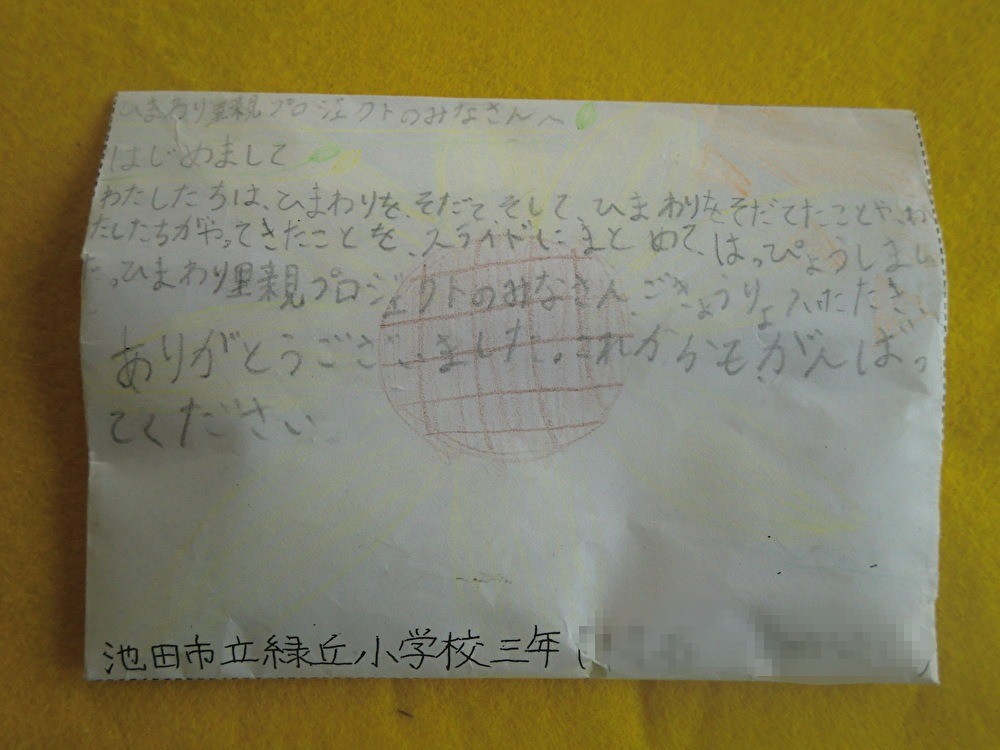 ひまわり里親プロジェクトのみなさんへ
はじめまして
わたしたちは、ひまわりを、そだて そして、ひまわりをそだてたことや、わ
たしたちがやってきたことを、スライドに まとめて、はっぴょうしまし
た。ひまわり里親プロジェクトのみなさん、ごきょうりょくいただき、
ありがとうございました。これからもがんばっ
てください
池田市立緑丘小学校三年(